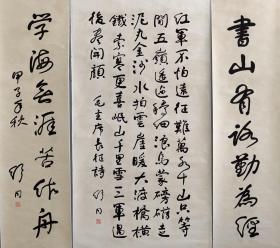 書山有路勤為徑
紅軍不怕遠征難萬水千山只等
閒五嶺逶迤騰細浪烏蒙磅礴走
泥丸金沙水拍雲崖暖大渡橋橫
鐵索寒更喜岷山千里雪三軍過
後盡開顏 毛主席長征詩 舒同
学海無涯苦作舟
甲子年秋 舒同